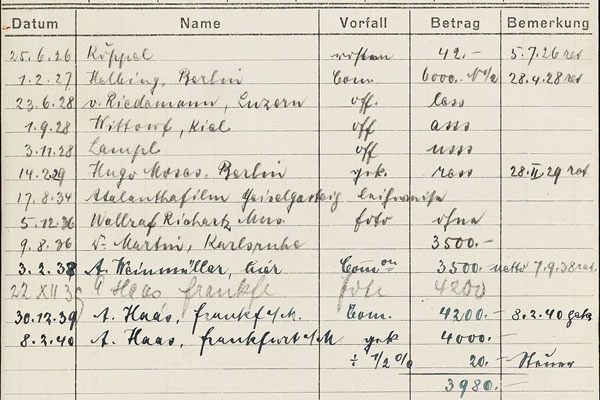 Datum Name Vorfall Betrag Bemerkung
25.6.26 Köppel 42.- 5.7.26 ret
1.2.27 Helbing, Berlin Com. 6000.- 28.4.28 ret
23.6.28 v. Riedemann, Luzern off. less
1.9.28 Wittorf, Kiel off ass
3.11.28 Lampl off uss
14.2.29 Hugo Moses, Berlin gek. ress 28.II.29 ret
17.8.34 Atalanthafilm Geiselgasteig leihweise
5.12.36 Wallraf Richartz Mus. foto ohne
9.8.36 Dr. Martin, Karlsruhe 3500.-
3.2.38 A. Weinmüller, hier Com 3500.- netto 7.9.38 ret.
22 XII 39 A Haas frankf. foto 4200
30.12.39 A. Haas, frankf a/M. Com. 4200.- 8.2.40 gek
8.2.40 A. Haas, frankfurt a/M gek 4000.-
÷ 1/2 % 20.- Steuer
3980.-